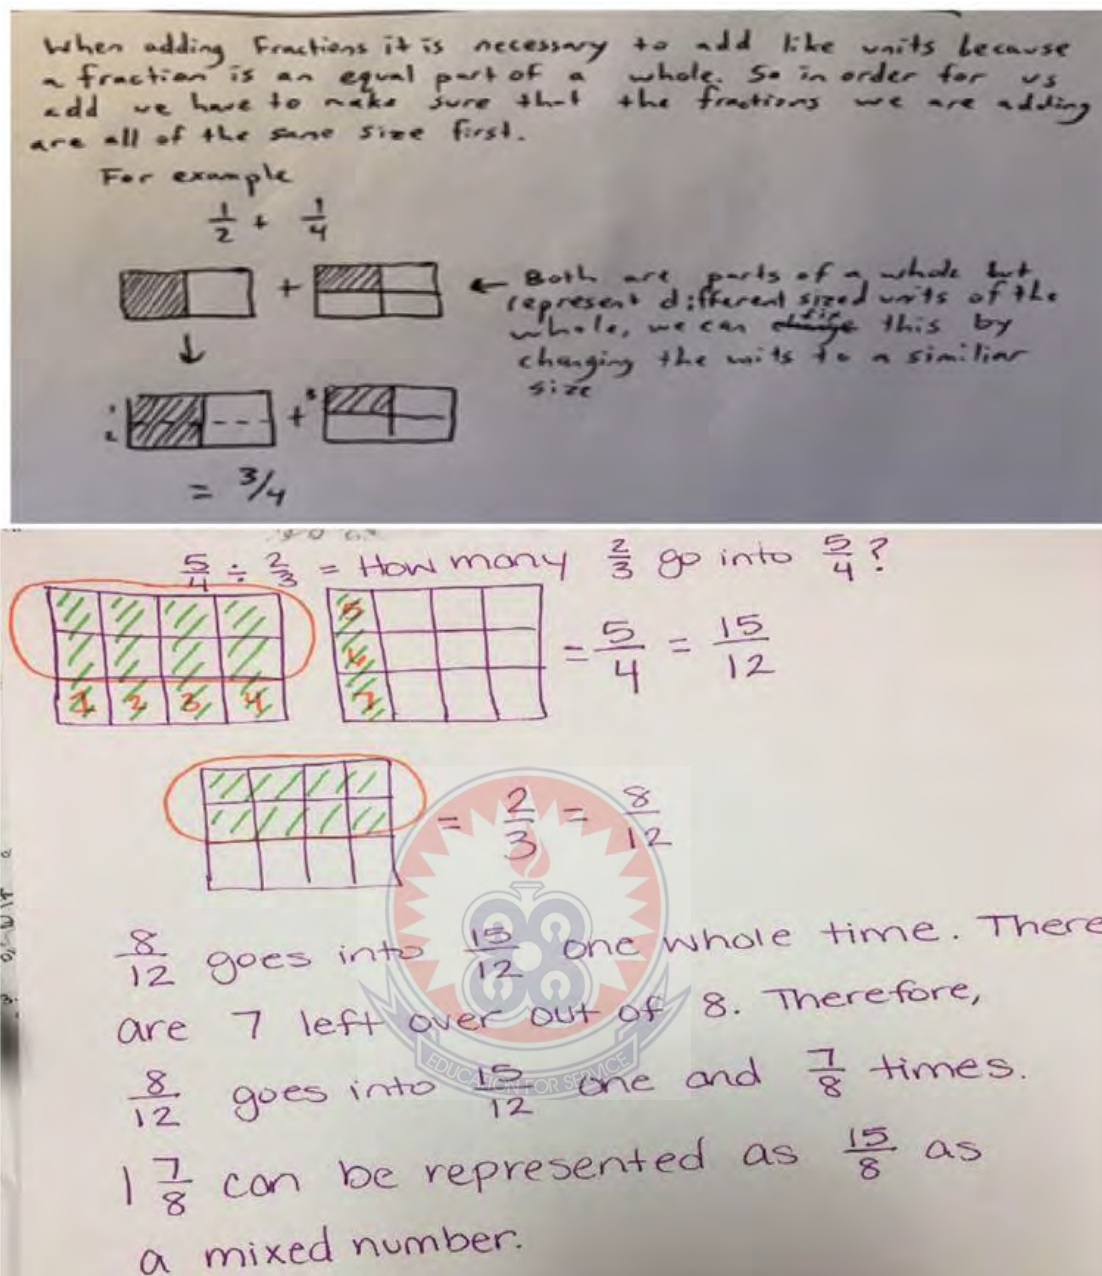 When adding Fractions it is necessary to add like units because
a fraction is an equal part of a whole. So in order for us
add we have to make sure that the fractions we are adding
are all of the same size first.
For example
1/2 + 1/4
+
← Both are parts of a whole but
represent different sized units of the
whole, we can fix this by
changing the units to a similiar
size
1
2
+ 3
= 3/4
5/4 ÷ 2/3 = How many 2/3 go into 5/4?
5
6
1 2 3 4 7
= 5/4 = 15/12
= 2/3 = 8/12
8/12 goes into 15/12 one whole time. There
are 7 left over out of 8. Therefore,
8/12 goes into 15/12 one and 7/8 times.
1 7/8 can be represented as 15/8 as
a mixed number.
EDUCATION FOR SERVICE